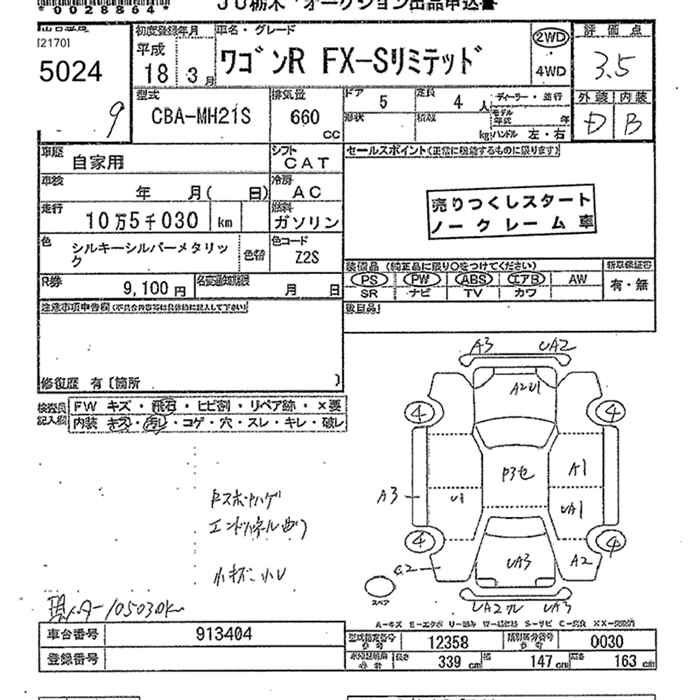 *0028864*
JU栃木 オークション出品申込書
[2170]
5024
9
初度登録年月
平成
18年 3月
車名・グレード
ワゴンR FX-Sリミテッド
2WD
4WD
評価点
3.5
外装 内装
D B
型式
CBA-MH21S
排気量
660 cc
ドア
5
定員
4 人
形状
積載
kg
ディーラー・並行
モデル年式 年
ハンドル 左・右
車歴
自家用
シフト
CAT
車検
年 月( 日)
冷房
AC
走行
10万5千030 km
燃料
ガソリン
色
シルキーシルバーメタリック
色替
色コード
Z2S
R券
9,100円
名変期限
月 日
セールスポイント(正常に機能するものに限ります)
売りつくしスタート
ノークレーム車
装備品(純正品に限り○をつけてください)
PS PW ABS エアB AW
SR ナビ TV カワ
新車保証書
有・無
後日品
注意事項申告欄
修復歴 有〔箇所 〕
検査員記入欄
FW キズ・飛石・ヒビ割・リペア跡・×要
内装 キズ・汚レ・コゲ・穴・スレ・キレ・破レ
A3 UA2
A2U1
4 4
P3セ
A1
A3
U1
UA1
4 4
UA3
A2
スペア
UA3
現メーター105030K
車台番号
913404
登録番号
型式指定番号
12358
類別区分番号
0030
長さ
339 cm
幅
147 cm
高さ
163 cm